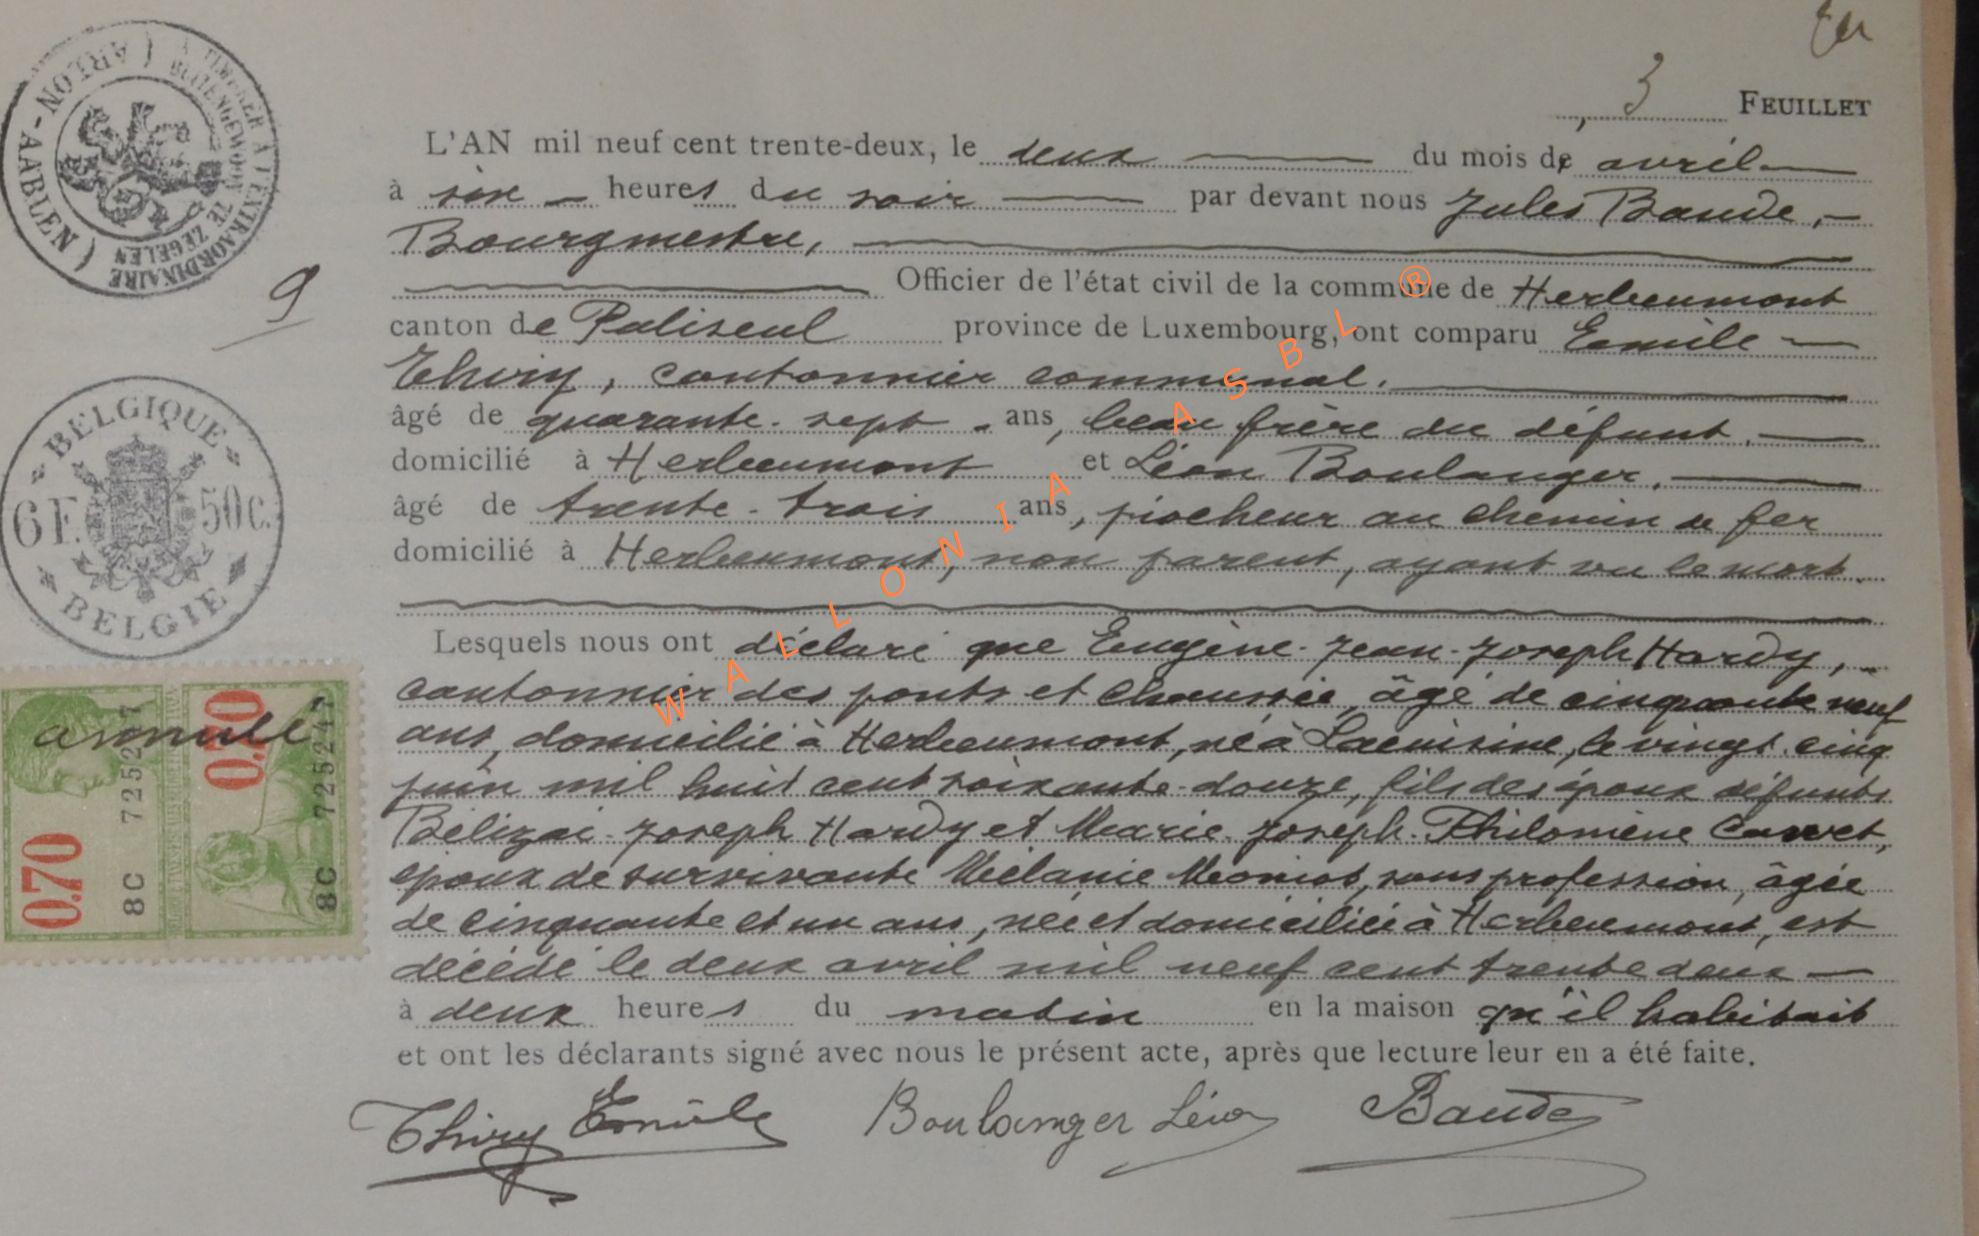 3 FEUILLET
L'AN mil neuf cent trente-deux, le deux du mois de avril
à six heures du soir par devant nous Jules Baude,
Bourgmestre,
Officier de l'état civil de la commune de Herbeumont
canton de Paliseul province de Luxembourg, ont comparu Emile
Thiry, cantonnier communal.
âgé de quarante-sept ans, beau frère du défunt.
domicilié à Herbeumont et Léon Boulanger.
âgé de trente-trois ans, piocheur au chemin de fer
domicilié à Herbeumont, non parent, ayant vu le mort.
Lesquels nous ont déclaré que Eugène-Jean-Joseph Hardy,
cantonnier des ponts et chaussée, âgé de cinquante neuf
ans, domicilié à Herbeumont, né à Lacuisine, le vingt-cinq
juin mil huit cent soixante-douze, fils des époux défunts
Bélizai-Joseph Hardy et Marie-Joseph-Philomène
époux de survivante Mélanie sans profession, âgée
de cinquante et un ans, née et domiciliée à Herbeumont, est
décédé le deux avril mil neuf cent trente deux
à deux heures du matin en la maison qu'il habitait
et ont les déclarants signé avec nous le présent acte, après que lecture leur en a été faite.
Thiry Emile Boulanger Léon Baude
ARLON - AARLEN
TIMBRER A L'EXTRAORDINAIRE
BUITENGEWOON TE ZEGELEN
9
BELGIQUE
6F. 50c.
BELGIE
annulé
0.70 8C 725247
0.70 8C 725247
WALLONIA ASBL ®